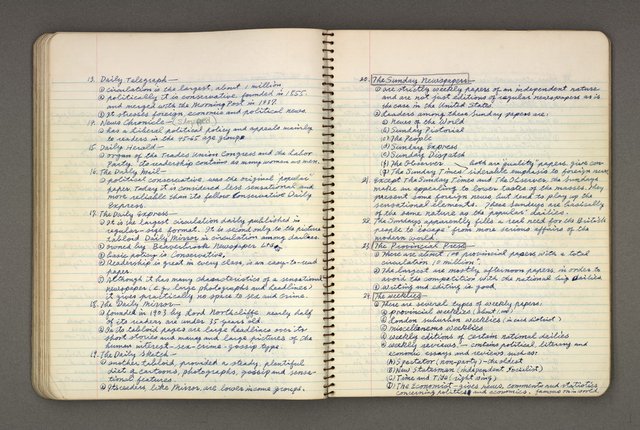 13. Daily Telegraph—
① circulation is the largest, about 1 million
② politically it is conservative, founded in 1855
and merged with the Morning Post in 1937.
③ It stresses foreign economic and political news.
14. News Chronicle—
① has a liberal political policy and appeals mainly
to readers in the 45-65 age group.
15 Daily Herald—
① organ of the Trades Union Congress and the Labor
Party. Its readership contains as many women as men.
16. The Daily Mail—
① political conservative, was the original "popular"
paper. Today it is considered less sensational and
more reliable than its fellow Conservative Daily
Express.
17. The Daily Express—
① It is the largest circulation daily published in
regular-size format. It is second only to the picture
tabloid Daily Mirror in circulation among dailies.
② owned by Beaverbrook Newspaper Ltd.
③ basic policy is Conservative.
④ Readership is great in every class, is an easy-to-read
paper.
⑤ Although it has many characteristics of a sensational
newspaper (e.g. large photographs and headlines)
it gives practically no space to sex and crime.
18. The Daily Mirror—
① founded in 1903 by Lord Northcliffe nearly half
of its readers are under 35 years old.
② In its tabloid pages are large headlines over its
short stories and many and large pictures of the
human interest-sex-crime-gossip type.
19. The Daily Sketch—
① another tabloid, provides a steady, plentiful
diet of cartoons, photographs, gossip and sensa-
tional features.
② Its readers, like Mirror, are lower income groups.
20. The Sunday Newspapers—
① are strictly weekly papers of an independent nature
and are not just editions of regular newspapers as is
the case in the United States.
② Leaders among these Sunday papers are:
① News of the World
(b) Sunday Pictorial
(c) The People
(d) Sunday Express
(e) Sunday Dispatch
(f) The Observer — both are "quality" papers, give con-
(g) The Sunday Times siderable emphasis to foreign news.
21. Except The Sunday Times and The Observer, the Sundays
make an appealing to lower tastes of the masses. They
present some foreign news, but tend to play up the
sensational elements. These Sundays are basically
of the same nature as the "popular" dailies.
22. The Sundays apparently fills a real need for the British
people to escape from more serious affairs of the
modern world.
23. The Provincial Press
① There are about 100 provincial papers with a total
circulation 10 million.
② The largest are mostly afternoon papers in order to
avoid the competition with the national big dailies.
③ Writing and editing is good.
24. The weeklies
① There are several types of weekly papers:
① Provincial weeklies
② London suburban weeklies
③ miscellaneous weeklies
④ weekly editions of certain national dailies
⑤ weekly reviews — contains political, literary and
economic essays and reviews such as:
(A) Spectator (non-party) - the oldest
(B) New Statesman (independent Socialist)
(C) Time and Tide (right wing)
(D) The Economist - gives news, comments and statistics
concerning politics and economics, famous in world